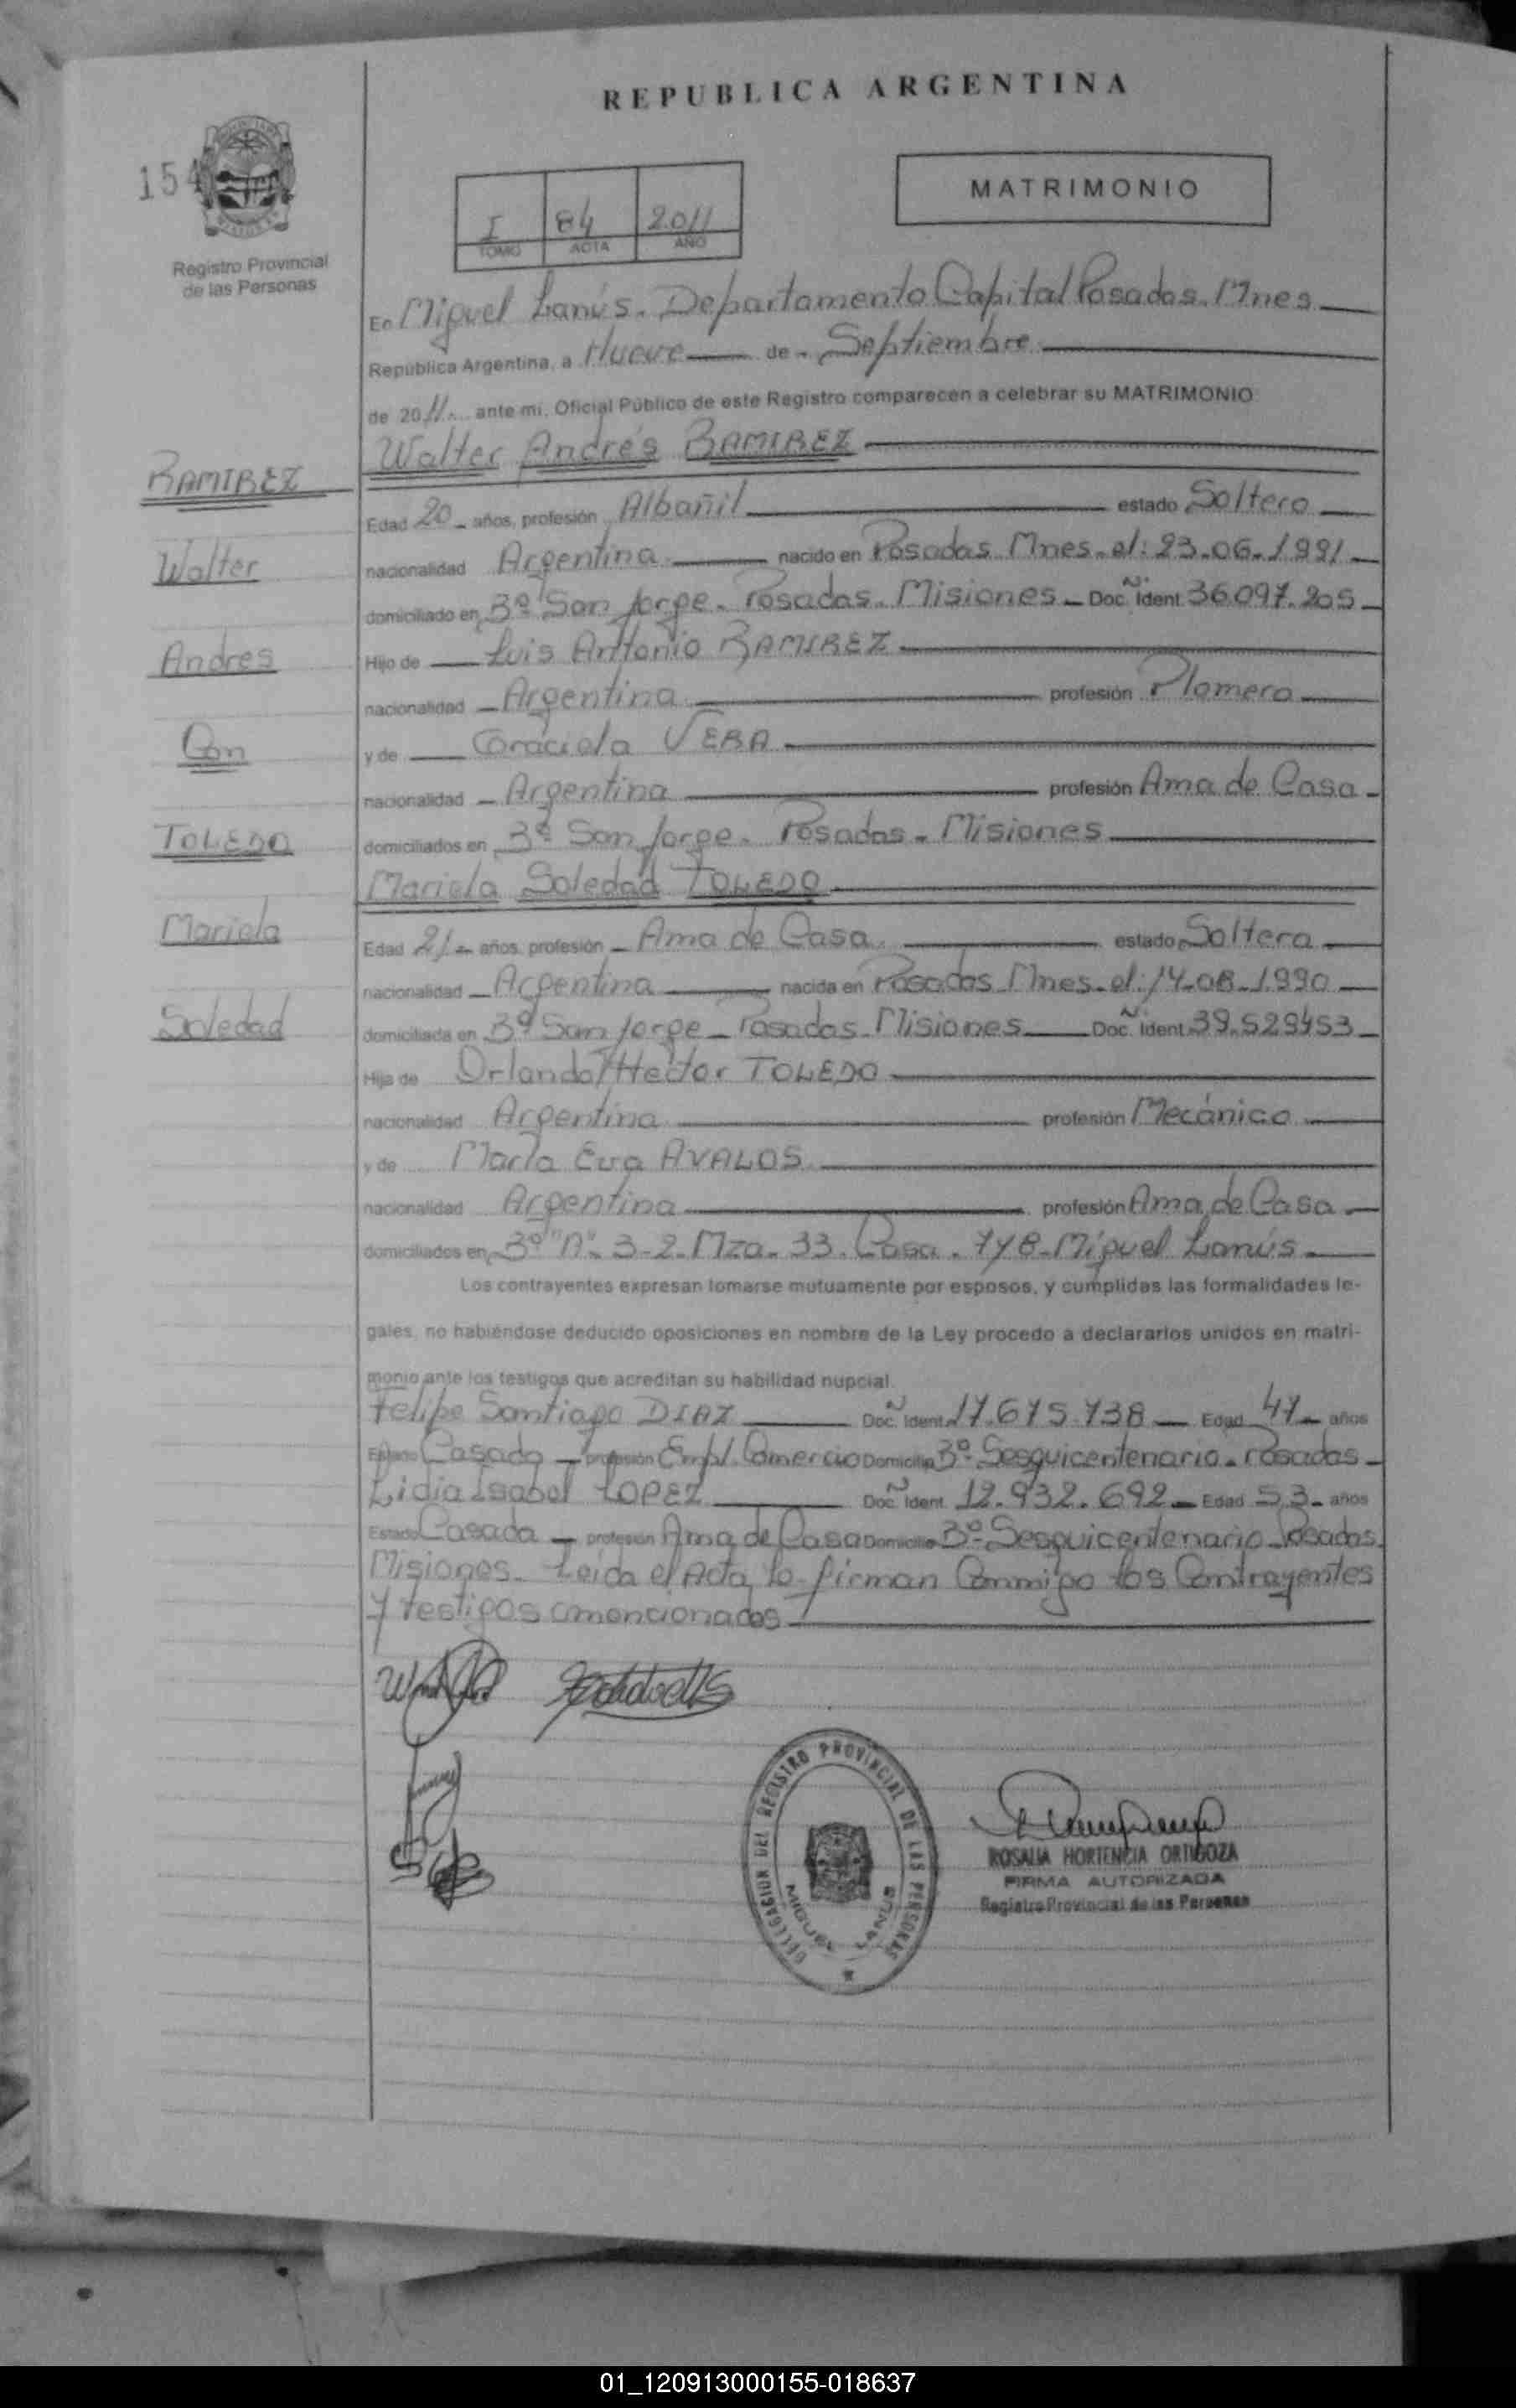 REPUBLICA ARGENTINA
154
MATRIMONIO
I 84 2011
TOMO ACTA AÑO
Registro Provincial
de las Personas
En Miguel Lanús. Departamento Capital Posadas. Mnes
República Argentina, a Nueve de Septiembre
de 2011. ante mi, Oficial Público de este Registro comparecen a celebrar su MATRIMONIO
Walter Andrés RAMIREZ
RAMIREZ
Edad 20 años, profesión Albañil estado Soltero
Walter
nacionalidad Argentina nacido en Posadas Mnes. el: 23.06.1991
domiciliado en Bº San Jorge. Posadas. Misiones Doc. Ident. 36.097.205
Andres
Hijo de Luis Antonio RAMIREZ
nacionalidad Argentina profesión Plomero
Con
y de Graciela VERA
nacionalidad Argentina profesión Ama de Casa
TOLEDO
domiciliados en Bº San Jorge. Posadas. Misiones
Mariela Soledad TOLEDO
Mariela
Edad 21 años, profesión Ama de Casa. estado Soltera
nacionalidad Argentina nacida en Posadas Mnes. el: 14.08.1990
Soledad
domiciliada en Bº San Jorge Posadas Misiones Doc. Ident. 39.529453
Hija de Orlando Hector TOLEDO
nacionalidad Argentina profesión Mecánico
y de María Eva AVALOS
nacionalidad Argentina profesión Ama de Casa
domiciliados en Bº "A". 3-2. Mza. 33. Casa. 7 y 8. Miguel Lanús
Los contrayentes expresan tomarse mutuamente por esposos, y cumplidas las formalidades le-
gales, no habiéndose deducido oposiciones en nombre de la Ley procedo a declararlos unidos en matri-
monio ante los testigos que acreditan su habilidad nupcial.
Felipe Santiago DIAZ Doc. Ident. 17.675.738 Edad 47 años
Estado Casado profesión Empl. Comercio Domicilio Bº Sesquicentenario. Posadas
Lidia Isabel LOPEZ Doc. Ident. 12.932.692 Edad 53 años
Estado Casada profesión Ama de Casa Domicilio Bº Sesquicentenario Posadas
Misiones. Leída el Acta, la firman Conmigo los Contrayentes
y testigos mencionados
DELEGACION DEL REGISTRO PROVINCIAL DE LAS PERSONAS
MIGUEL LANUS
ROSALIA HORTENCIA ORTIGOZA
FIRMA AUTORIZADA
Registro Provincial de las Personas
01_120913000155-018637